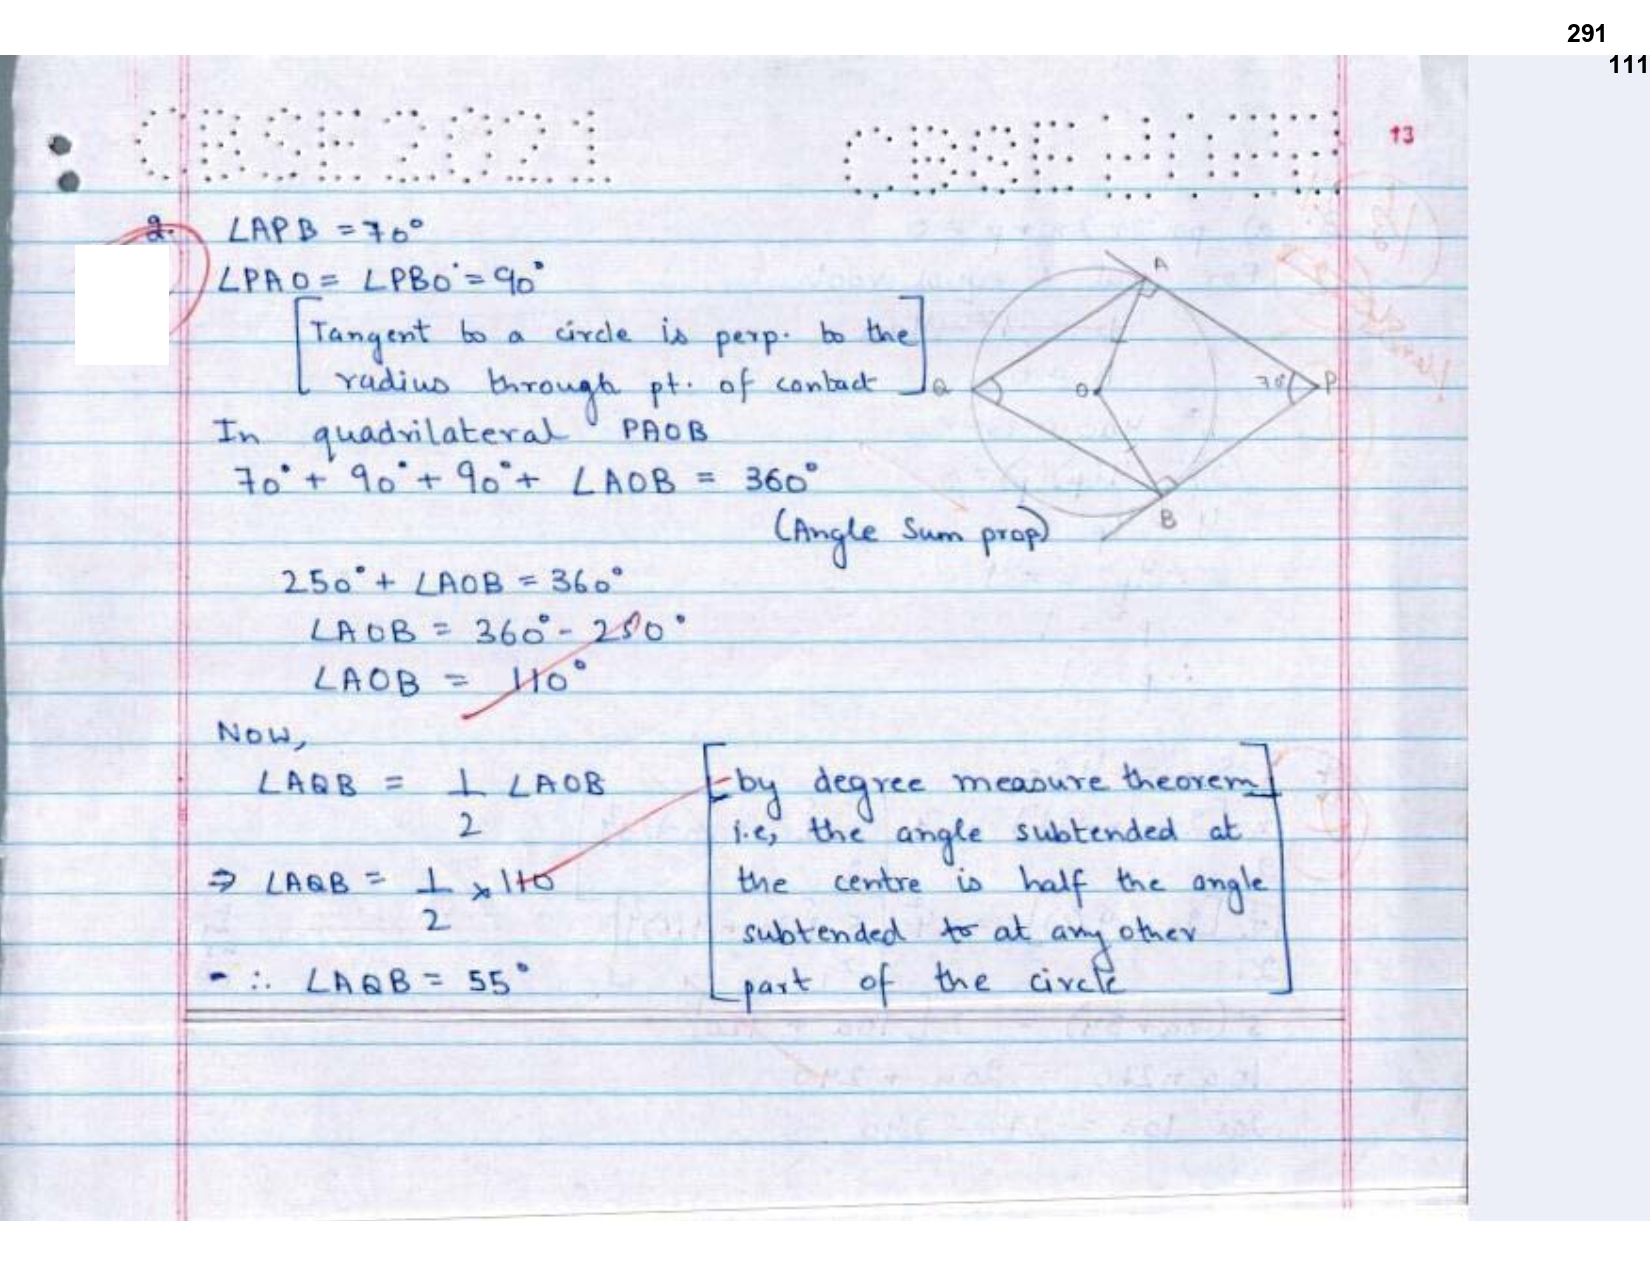 291
111
CBSE 2021
13
2. ∠APB = 70°
∠PAO = ∠PBO = 90°
[Tangent to a circle is perp. to the
radius through pt. of contact]
A
Q
O
70°
P
B
In quadrilateral PAOB
70° + 90° + 90° + ∠AOB = 360°
(Angle Sum prop)
250° + ∠AOB = 360°
∠AOB = 360° - 250°
∠AOB = 110°
Now,
∠AQB = 1/2 ∠AOB
[by degree measure theorem]
i.e, the angle subtended at
⇒ ∠AQB = 1/2 × 110
the centre is half the angle
subtended to at any other
∴ ∠AQB = 55°
part of the circle